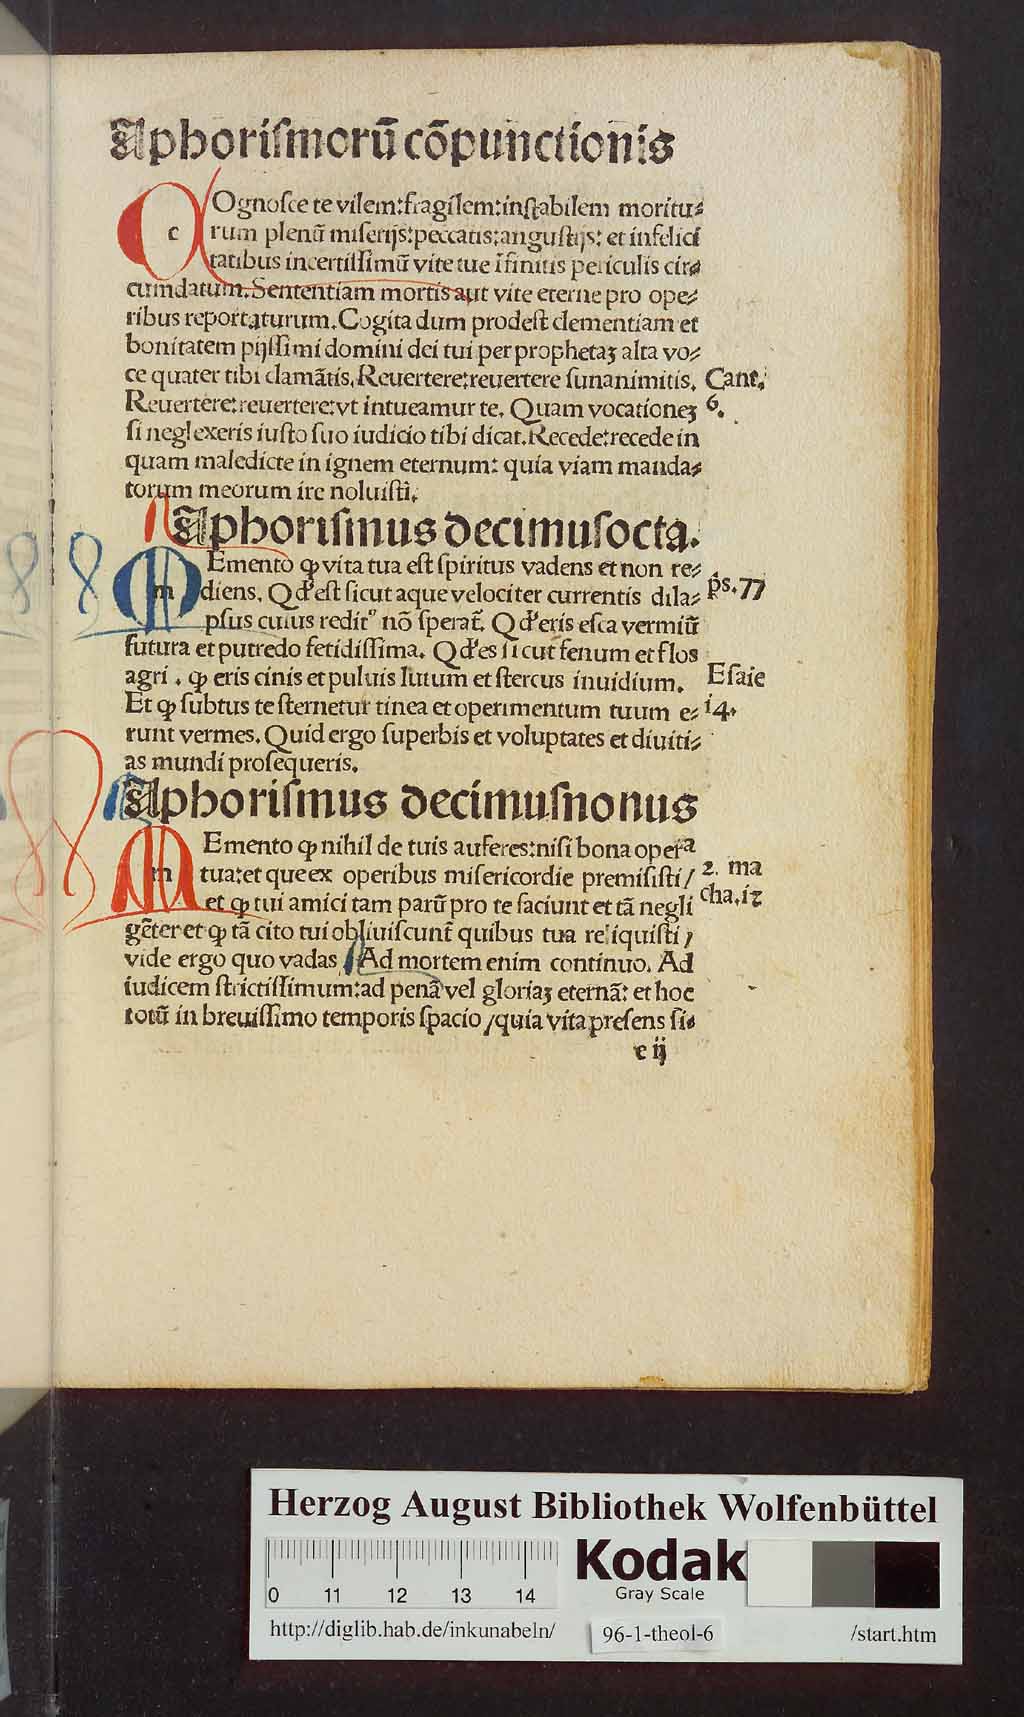 Aphoriſmorū cōpunctionis
COgnoſce te vilem:fragilem:inſtabilem moritu⸗
rum plenū miſerijs:peccatis:anguſtijs: et infelici
tatibus incertiſſimū vite tue īfinitis periculis cir⸗
cumdatum. Sententiam mortis aut vite eterne pro ope⸗
ribus reportaturum. Cogita dum prodeſt clementiam et
bonitatem pijſſimi domini dei tui per prophetaꝫ alta vo⸗
ce quater tibi clamātis. Reuertere:reuertere ſunanimitis. Cant.
Reuertere:reuertere:vt intueamur te. Quam vocationeꝫ 6.
ſi neglexeris iuſto ſuo iudicio tibi dicat. Recede:recede in
quam maledicte in ignem eternum: quia viam manda⸗
torum meorum ire noluiſti.
Aphoriſmus decimuſocta.
MEmento ꝙ vita tua eſt ſpiritus vadens et non re⸗
diens. Qđ eſt ſicut aque velociter currentis dila⸗ ps.77
pſus cuius reditꝰ nō ſperat̄. Qđ eris eſca vermiū
futura et putredo fetidiſſima. Qđ es ſicut fenum et flos
agri . ꝙ eris cinis et puluis lutum et ſtercus inuidium. Eſaie
Et ꝙ ſubtus te ſternetur tinea et operimentum tuum e⸗ 14.
runt vermes. Quid ergo ſuperbis et voluptates et diuiti⸗
as mundi proſequeris.
Aphoriſmus decimuſnonus
MEmento ꝙ nihil de tuis auferes:niſi bona opera
tua:et que ex operibus miſericordie premiſiſti / 2. ma
et ꝙ tui amici tam parū pro te faciunt et tā negli cha.12
gēter et ꝙ tā cito tui obliuiſcunt̄ quibus tua reliquiſti /
vide ergo quo vadas Ad mortem enim continuo. Ad
iudicem ſtrictiſſimum:ad penā vel gloriaꝫ eternā: et hoc
totū in breuiſſimo temporis ſpacio / quia vita preſens ſi⸗
e ij
Herzog August Bibliothek Wolfenbüttel
0 11 12 13 14
Kodak
Gray Scale
http://diglib.hab.de/inkunabeln/ 96-1-theol-6 /start.htm